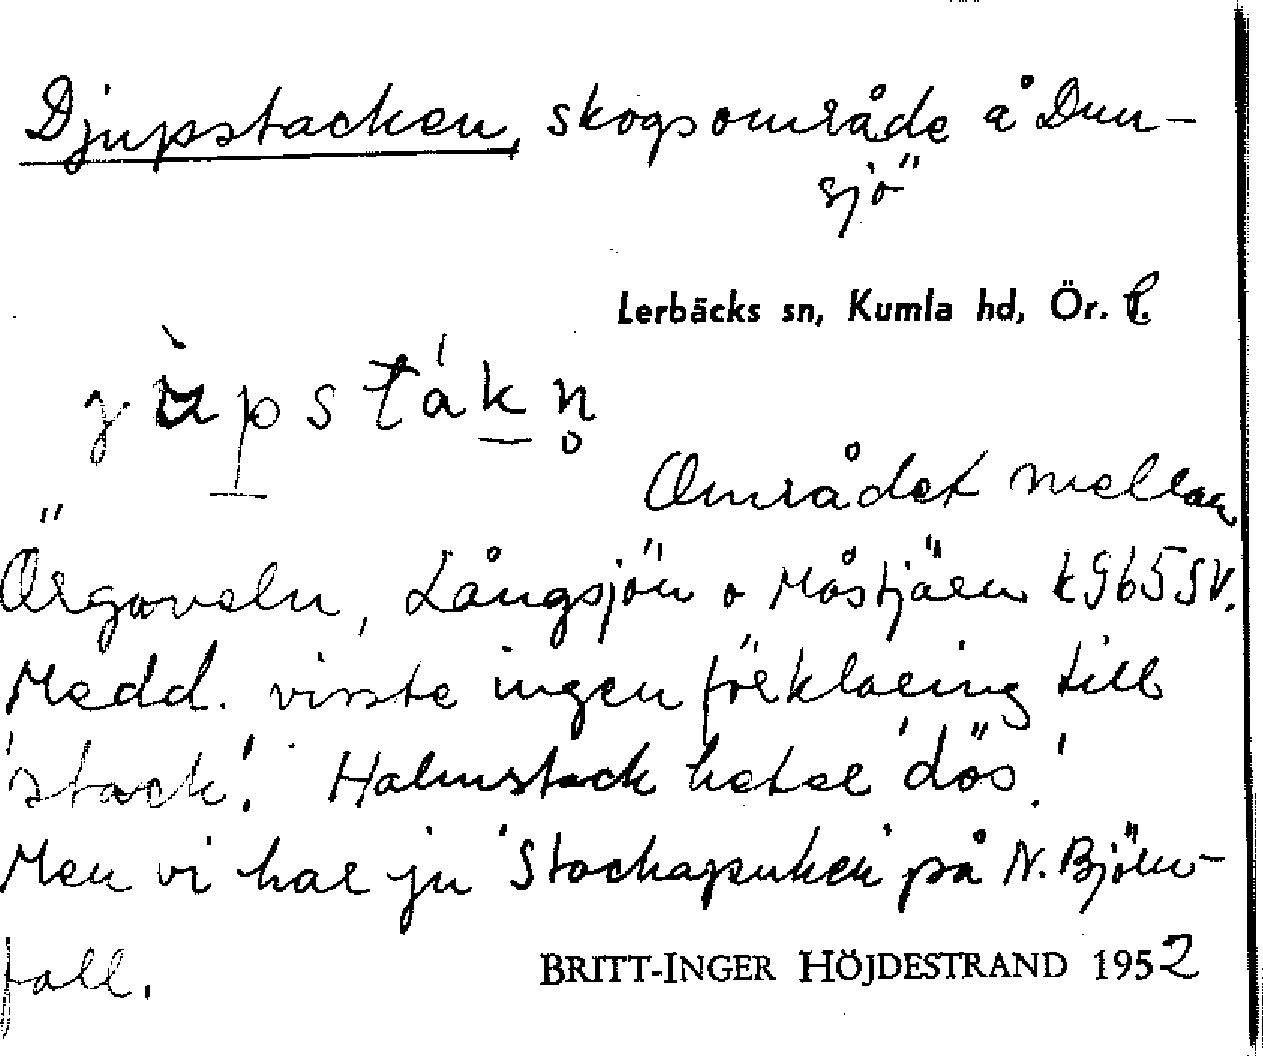 Djupstacken, skogsområde å Dun-
sjö
Lerbäcks sn, Kumla hd, Ör. l.
jùpstákn̥
Området mellan
Örgaveln, Långsjön o Måstjärn k965SV.
Medd. visste ingen förklaring till
'stack'. Halmstack heter 'dös'.
Men vi har ju 'Stackapuken' på N. Björn-
fall.
BRITT-INGER HÖJDESTRAND 1952